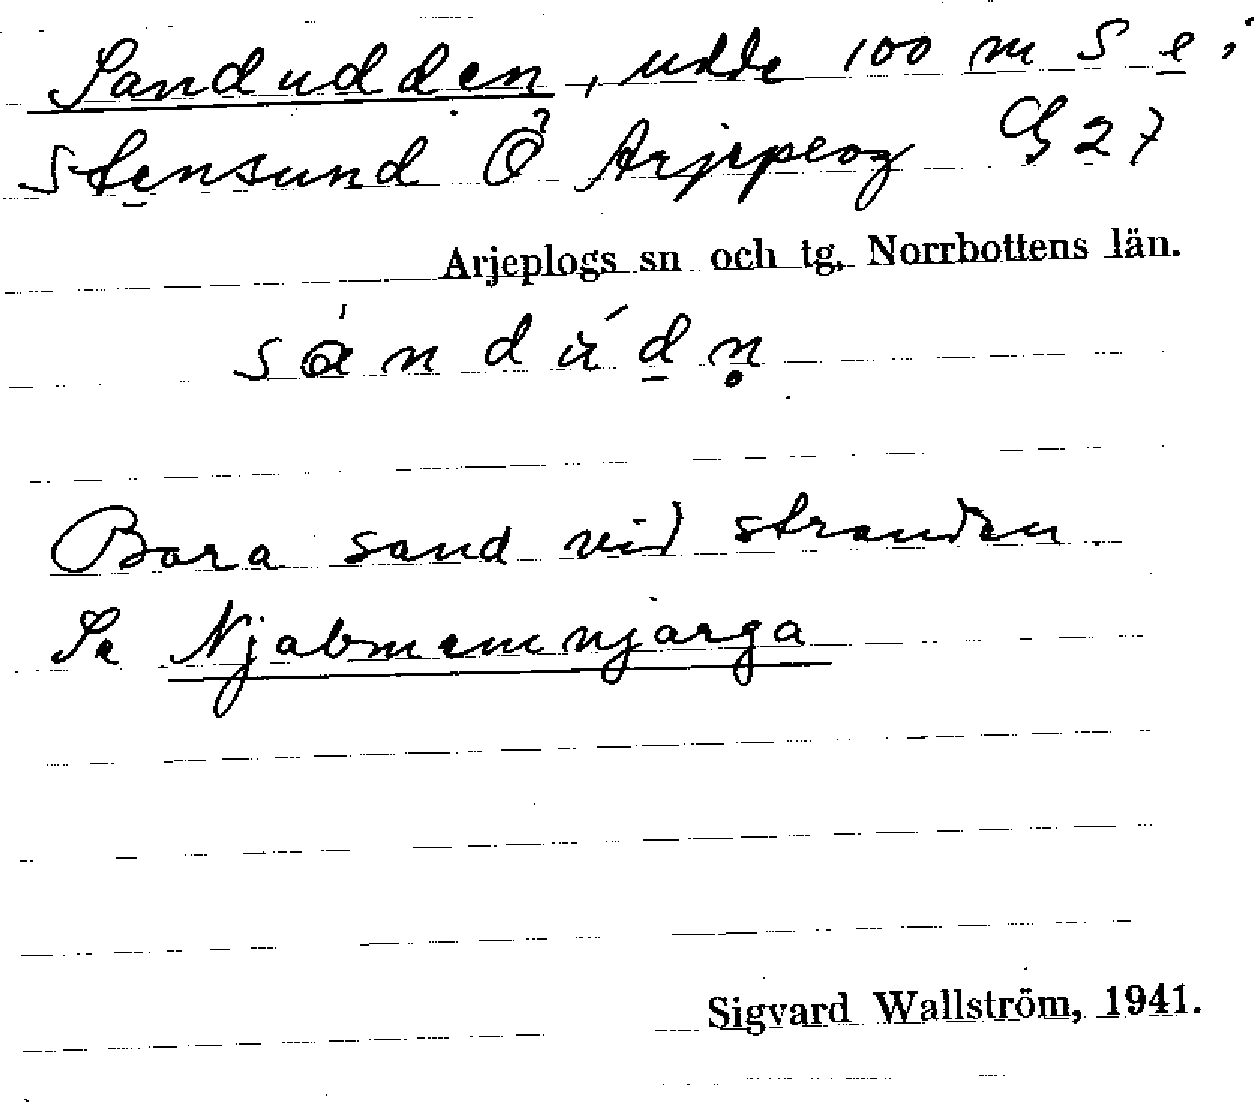 Sandudden, udde 100 m S e i
Stensund Ö Arjeplog G 27
Arjeplogs sn och tg, Norrbottens län.
Bara sand vid stranden
Se Njabmemnjarga
Sigvard Wallström, 1941.